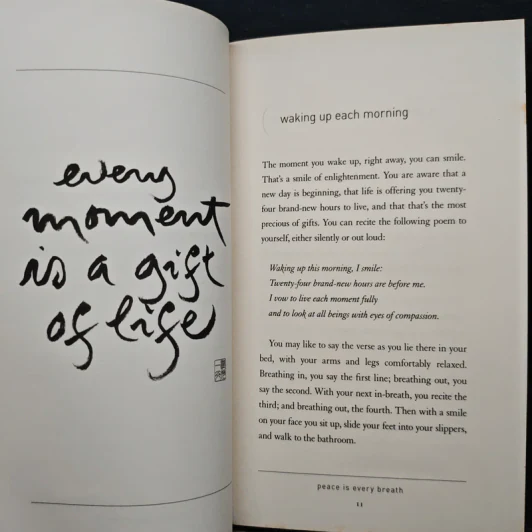 every
moment
is a gift
of life
waking up each morning
The moment you wake up, right away, you can smile.
That's a smile of enlightenment. You are aware that a
new day is beginning, that life is offering you twenty-
four brand-new hours to live, and that that's the most
precious of gifts. You can recite the following poem to
yourself, either silently or out loud:
Waking up this morning, I smile:
Twenty-four brand-new hours are before me.
I vow to live each moment fully
and to look at all beings with eyes of compassion.
You may like to say the verse as you lie there in your
bed, with your arms and legs comfortably relaxed.
Breathing in, you say the first line; breathing out, you
say the second. With your next in-breath, you recite the
third; and breathing out, the fourth. Then with a smile
on your face you sit up, slide your feet into your slippers,
and walk to the bathroom.
peace is every breath
11